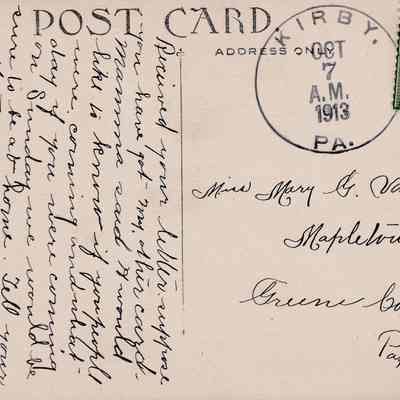 POST CARD
ADDRESS ONLY
KIRBY.
OCT
7
A.M.
1913
PA.
Recived your letter suppose
you have got my other card.
Mamma said I would
like to know if you people
were coming in what
day if you were coming
on Sunday we would be
sure to be at home. Tell your
Miss Mary G. Va
Mapletow
Greene Co
Pa